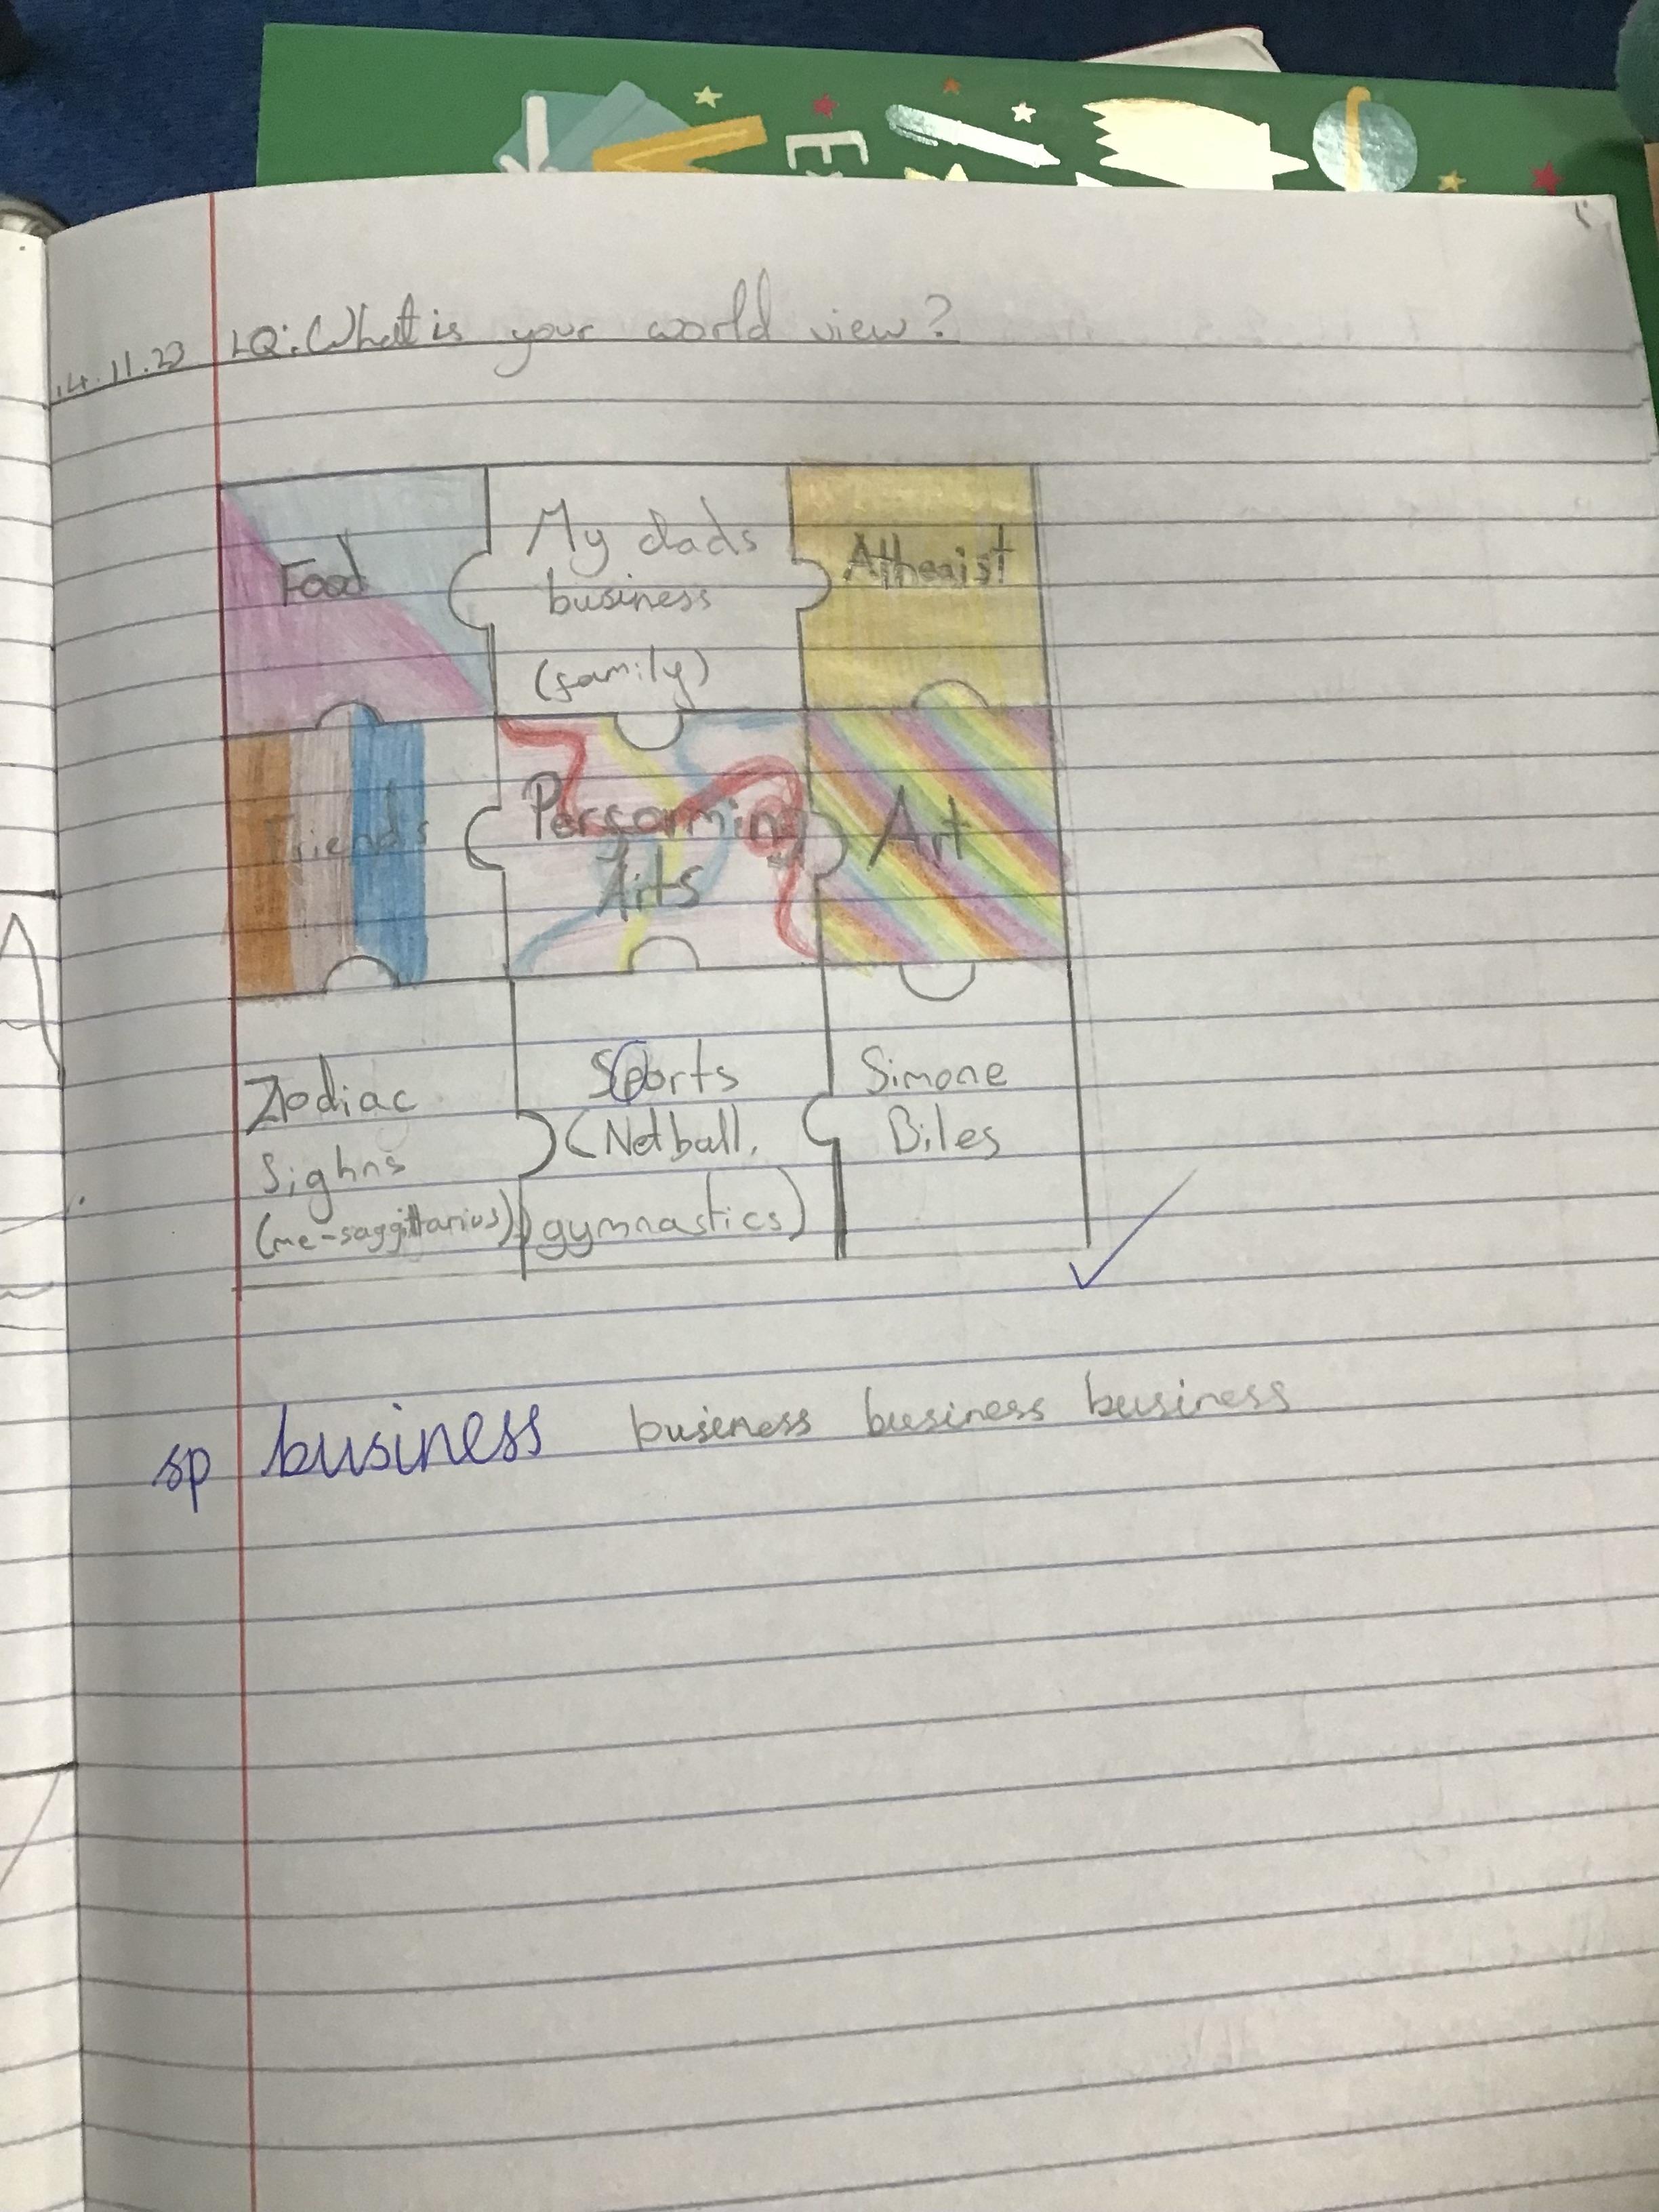 .4.11.23 LQ: What is your world view?
Food
My dads
business
(family)
Atheaist
Friends
Persorming
Arts
Art
Zodiac
Sighns
(me-saggittarius)
Sports
(Netball,
gymnastics)
Simone
Biles
sp business busieness business business